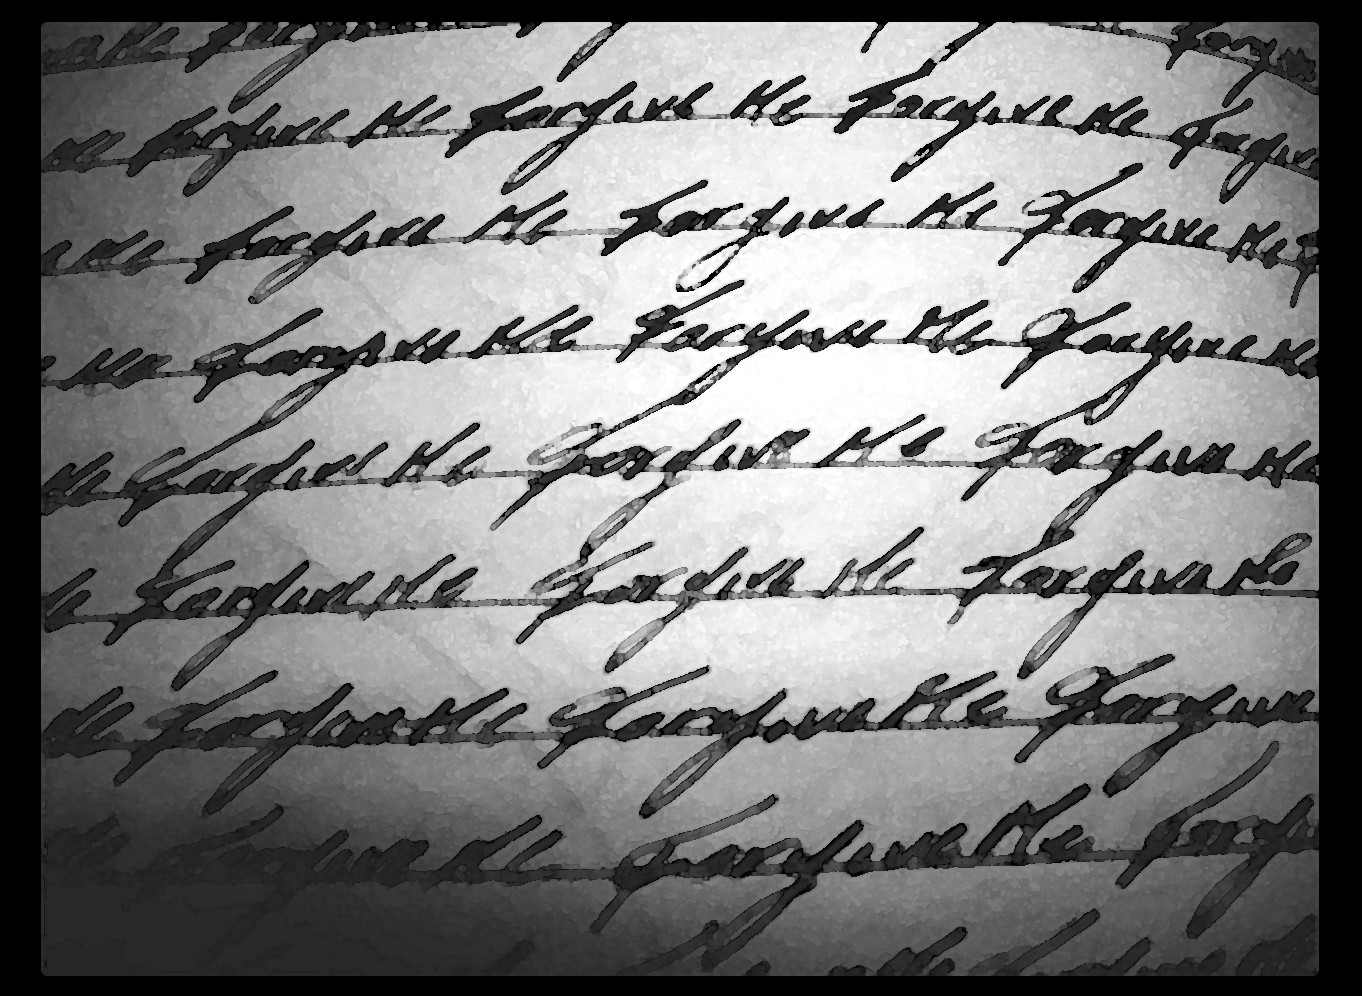 Me Forgive
Me Forgive Me Forgive Me Forgive Me Forgive
Me Forgive Me Forgive Me Forgive Me
Me Forgive Me Forgive Me Forgive Me
Me Forgive Me Forgive Me Forgive Me
Me Forgive Me Forgive Me Forgive Me
Me Forgive Me Forgive Me Forgive
Me Forgive Me Forgive Me Forgi